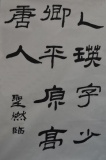 乙瑛字少
卿平原高
唐人
聖燃臨